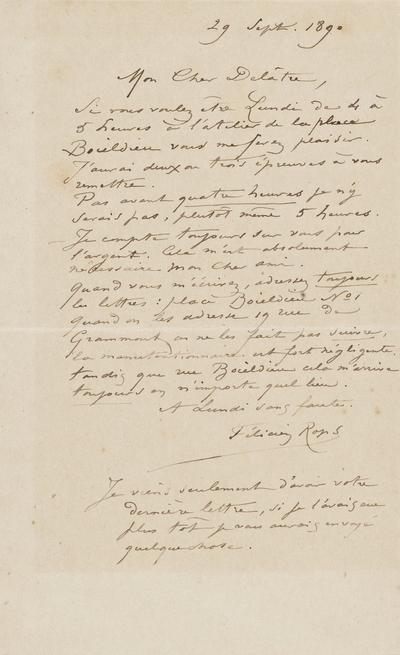 29 Sept. 1890
Mon Cher Delâtre,
Si vous voulez être Lundi de 4 à
5 heures à l'atelier de la place
Boieldieu vous me ferez plaisir.
J'aurai deux ou trois épreuves à vous
remettre.
Pas avant quatre heures je n'y
serais pas, plutôt même 5 heures.
Je compte toujours sur vous pour
l'argent. Cela m'est absolument
nécessaire mon cher ami.
Quand vous m'écrivez, adressez toujours
les lettres : place Boieldieu No 1
quand on les adresse 19 rue de
Grammont on ne les fait pas suivre,
la manutentionnaire est fort négligente.
tandis que rue Boieldieu cela m'arrive
toujours en n'importe quel lieu.
A Lundi sans faute.
Félicien Rops
Je viens seulement d'avoir votre
dernière lettre, si je l'avais eue
plus tôt je vous aurais envoyé
quelque chose.